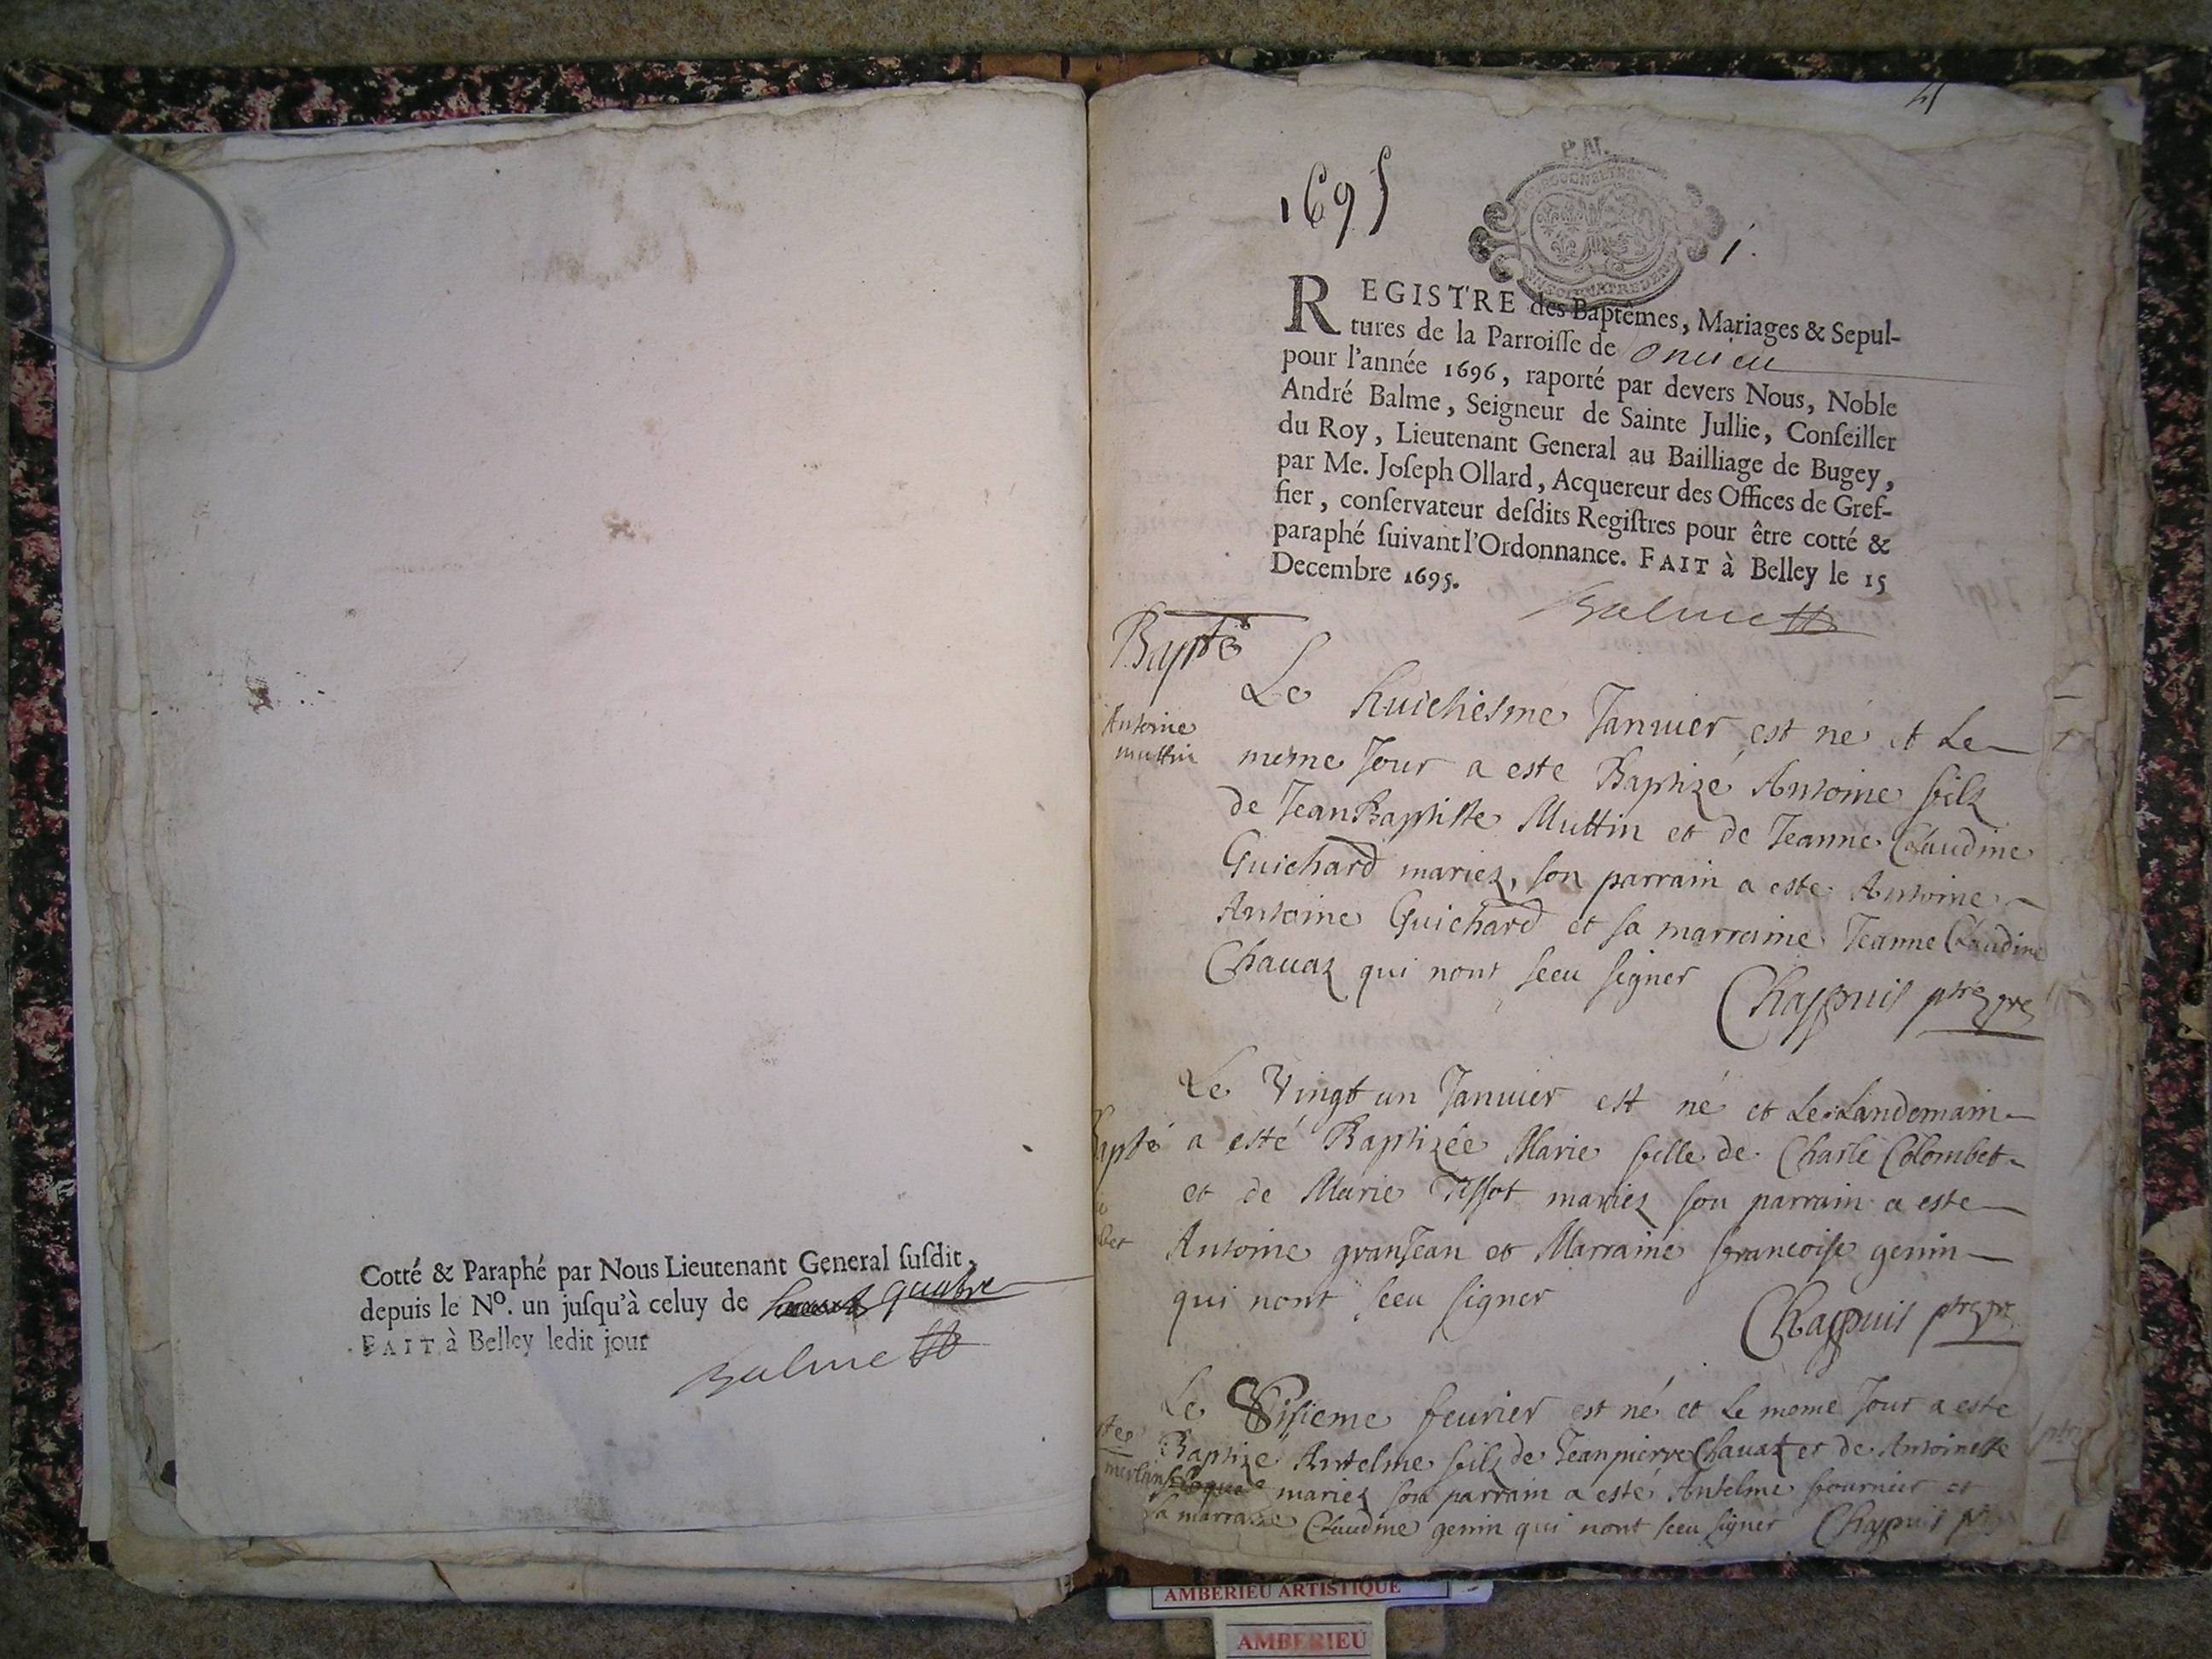 Cotté & Paraphé par Nous Lieutenant General suſdit,
depuis le Nº. un juſqu'à celuy de quatre
FAIT à Belley ledit jour
Balme
1695
1.
REGISTRE des Baptêmes, Mariages & Sepul-
tures de la Parroiſſe de Onieu
pour l'année 1696, raporté par devers Nous, Noble
André Balme, Seigneur de Sainte Jullie, Conſeiller
du Roy, Lieutenant General au Bailliage de Bugey,
par Me. Joſeph Ollard, Acquereur des Offices de Gref-
fier, conſervateur deſdits Regiſtres pour être cotté &
paraphé ſuivant l'Ordonnance. FAIT à Belley le 15
Decembre 1695.
Balme
Bapte
Antoine
muttin
Le huichiesme Janvier est né et Le
meme Jour a este Baptizé Antoine filz
de Jean Baptiste Muttin et de Jeanne Claudine
Guichard mariez, son parrain a este Antoine
Antoine Guichard et sa marraine Jeanne Claudine
Chauaz qui nont sceu signer Chappuis ptre
Le Vingt un Januier est né et Le Landemain
apte a esté Baptizée Marie fille de Charle Colombet
et de Marie Tissot mariez son parrain a este
Antoine granjean et Marraine francoise genin
qui nont sceu signer
Chappuis ptre
Le Sisieme feurier est né et Le meme Jour a este
Baptize Antelme filz de Jean pierre Chauaz et de Antoinette
merlin mariez son parrain a esté Antelme fournier et
sa marraine Claudine genin qui nont sceu signer Chappuis
AMBERIEU ARTISTIQUE
AMBERIEU